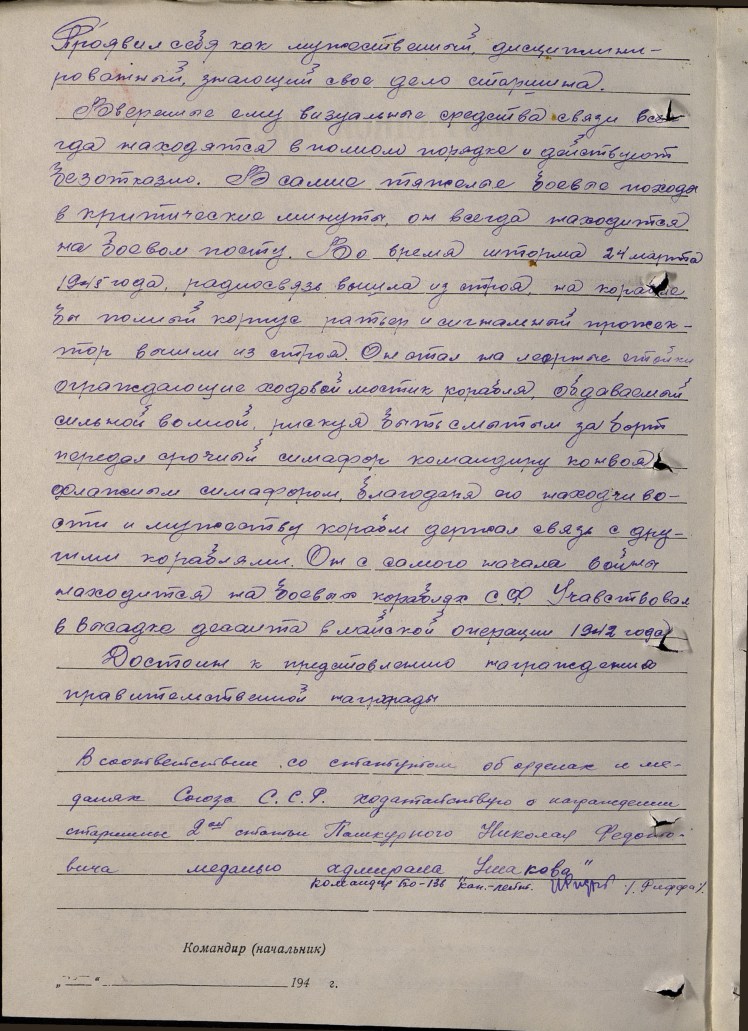 Проявил себя как мужественный, дисциплини-
рованный, знающий свое дело старшина.
Вверенные ему визуальные средства связи все-
гда находятся в полном порядке и действуют
безотказно. В самые тяжелые боевые походы
в критические минуты, он всегда находится
на боевом посту. Во время шторма 24 марта
1945 года, радиосвязь вышла из строя, на корабле
был полный корпус ратьер и сигнальный прожек-
тор вышли из строя. Он стал на леерные стойки
ограждающие ходовой мостик корабля, обдаваемый
сильной волной, рискуя быть смытым за борт
передал срочный симафор командиру конвоя
флажным симафором, благодаря его находчиво-
сти и мужеству корабль держал связь с дру-
гими кораблями. Он с самого начала войны
находится на боевых кораблях С.Ф. Учавствовал
в высадке десанта в майской операции 1942 года
Достоин к представлению награждению
правительственной награды
В соответствии со статутом об орденах и ме-
далях Союза С.С.Р. ходатайствую о награждении
старшины 2ой статьи Пашкурного Николая Федото-
вича медалью адмирала Ушакова"
Командир БО-136 кап.-лейт. /. Риффа /.
Командир (начальник)
„ “ 194 г.